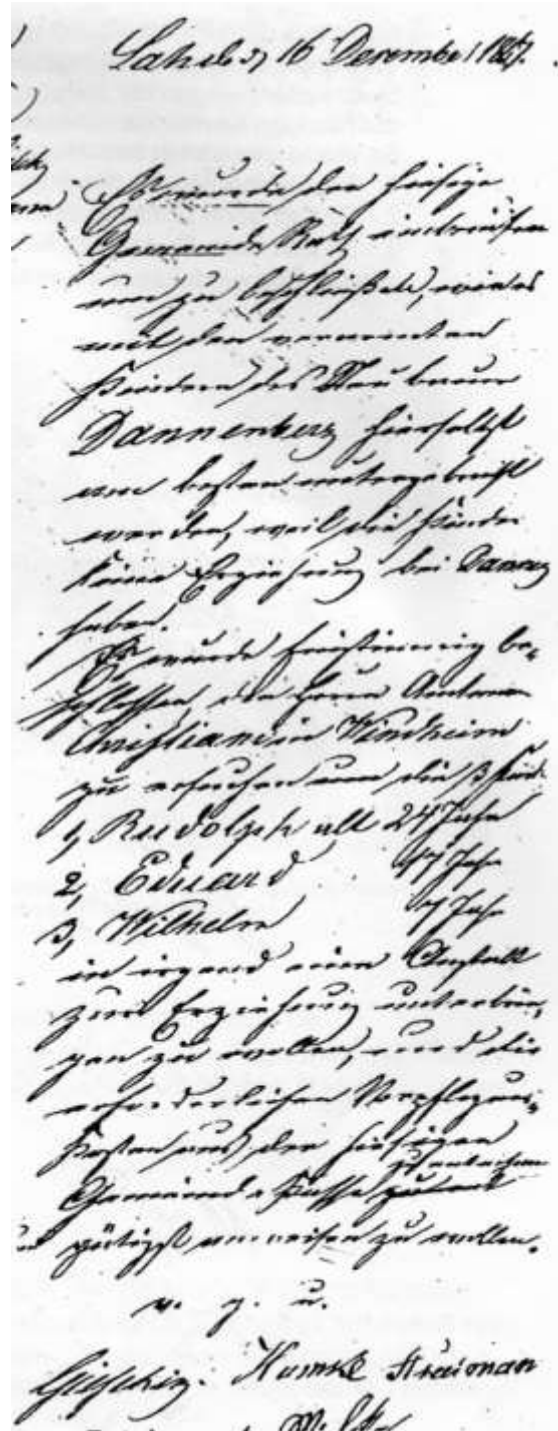 den 16 December 1867.
Es wurde der hiesige
Gemeinde Rath einberufen
um zu beschließen, wie es
mit den verwarnten
Kindern des Neubauer
Dannenberg hierselbst
am besten untergebracht
werden, weil die Kinder
keine Erziehung bei Dannenb
haben.
Es wurde einstimmig be-
schlossen, den Herrn Amtmann
Christiani in Windheim
zu ersuchen um die 3 Kind.
1, Rudolph alt Jahr
2, Eduard Jahr
3, Wilhelm Jahr
in irgend eine Anstalt
zur Erziehung unterbrin-
gen zu wollen, und die
erforderlichen Verpflegungs-
Kosten aus der hiesigen
Gemeinde Kasse
gütigst anweisen zu wollen.
v. g. u.
Humke